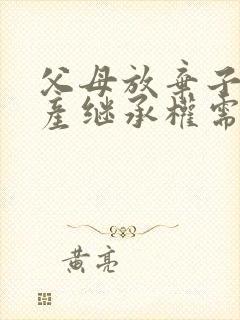 父母放棄子
產继承權需
黄亮